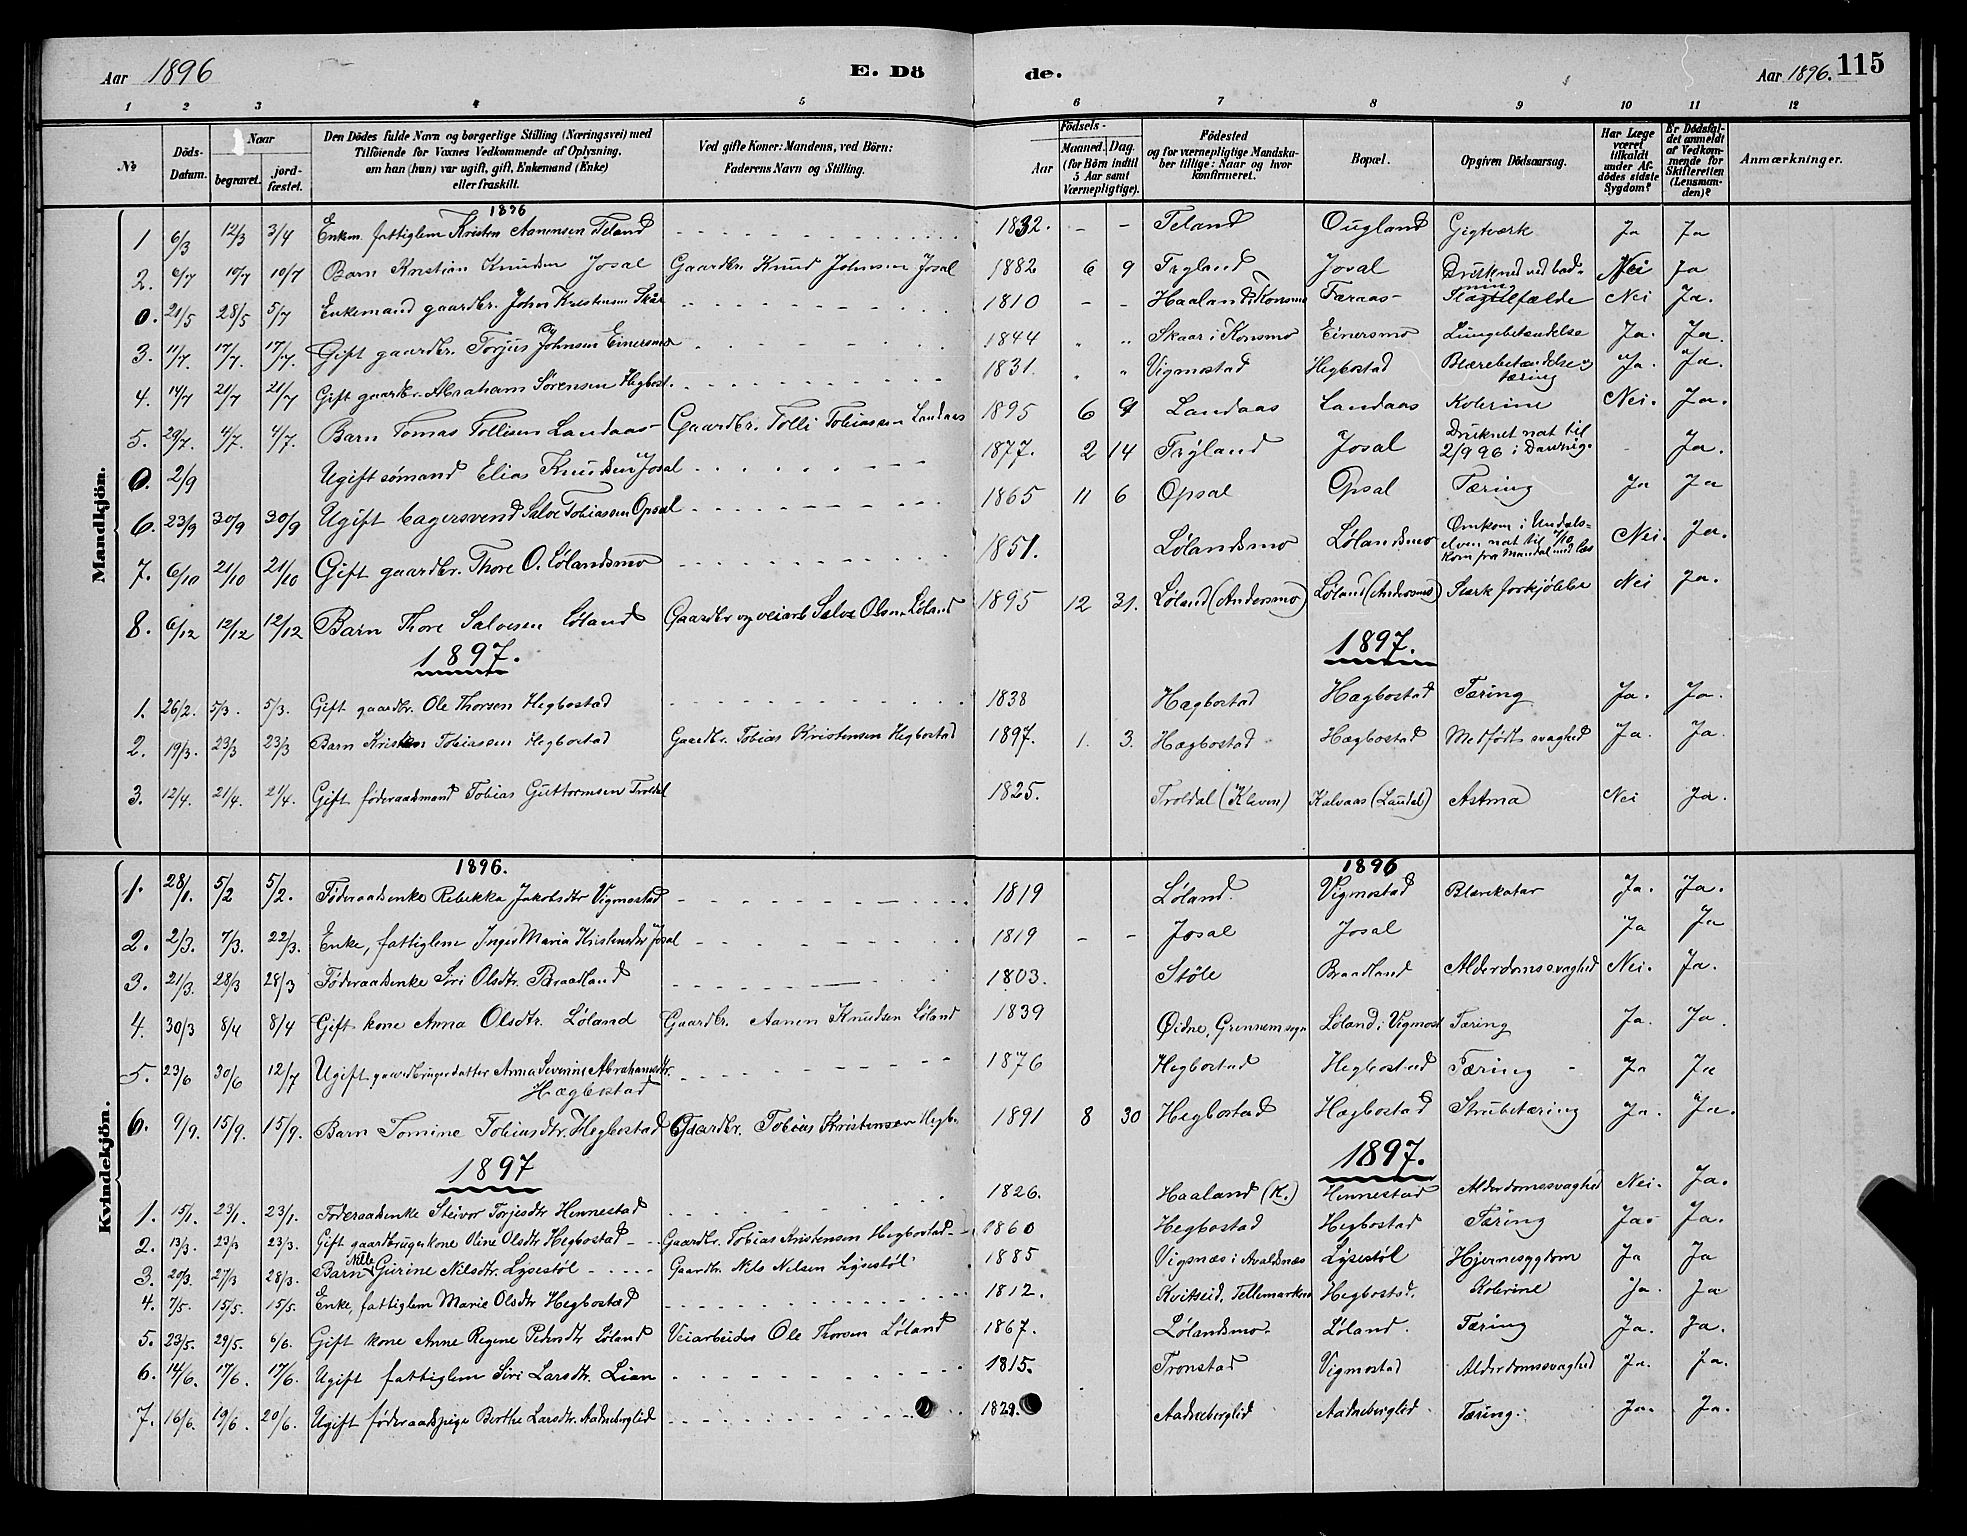 Aar 1896 E. Dö de. Aar 1896. 115
1 2 3 4 5 6 7 8 9 10 11 12
№ Döds-Datum. Naar begravet. jordfæstet. Den Dödes fulde Navn og borgerlige Stilling (Næringsvei) med Tilföiende for Voxnes Vedkommende af Oplysning, om han (hun) var ugift, gift, Enkemand (Enke) eller fraskilt. Ved gifte Koner: Mandens, ved Börn: Faderens Navn og Stilling. Födsels- Aar Maaned. Dag. (for Börn indtil 5 Aar samt Værnepligtige). Födested og for værnepligtige Mandskaber tillige: Naar og hvor konfirmeret. Bopæl. Opgiven Dödsaarsag. Har Læge været tilkaldt under Afdödes sidste Sygdom? Er Dödsfaldet anmeldt af Vedkommende for Skifteretten (Lensmanden)? Anmærkninger.
Mandkjön.
1896
1 6/3 12/3 3/4 Enkm. fattiglem Kristen Aanensen Teland 1832. - - Teland Ougland Gigtværk Ja Ja
2. 6/7 10/7 10/7 Barn Kristian Knudsen Josal Gaardbr. Knud Johnsen Josal 1882 6 9 Tryland Josal Druknet ved badning Nei Ja
0. 21/5 28/5 5/7 Enkemand gaardbr. John Kristensen Skår 1810 - - Haaland i Konsmo Faraas Slagtilfælde Nei Ja.
3. 11/7. 17/7. 17/7. Gift gaardbr. Torjus Johnsen Einersmo 1844 " " Skaar i Konsmo Einersmo Lungebetændelse Ja. Ja.
4. 14/7 21/7 21/7 Gift gaardbr. Abraham Sörensen Hegbost. 1831. " " Vigmostad Hegbostad Blærebetændelse og tæring Ja. Ja.
5. 29/7. 4/7. 4/7. Barn Tomas Tollisen Landaas Gaardbr. Tolli Tobiassen Landaas 1895 6 9 Landaas Landaas Kolerine Nei. Ja.
0. 2/9 Ugift sømand Elias Knudsen Josal 1877. 2 14 Trÿland Josal Druknet nat til 2/9 96 i - Ja.
6. 23/9 30/9 30/9 Ugift bagersvend Salve Tobiassen Opsal 1865 11 6 Opsal Opsal Tæring Ja Ja
7. 6/10 21/10 21/10 Gift gaardbr. Thore O. Lølandsmo 1851. Lølandsmo Lølandsmo Omkom i Undalselven nat til 7/10 kom fra Mandal med læs Nei. Ja.
8. 6/12 12/12 12/12 Barn Thore Salvesen Løland Gaardbr og veiarb Salve Olsen Løland 1895 12 31. Løland (Andersmo) Løland (Andersmo) Stærk forkjølelse Nei Ja.
1897. 1897.
1. 26/2. 5/3. 5/3. Gift gaardbr. Ole Thorsen Hegbostad 1838 Hægbostad Hægbostad Tæring Ja. Ja.
2. 19/3. 23/3 23/3 Barn Kristen Tobiassen Hegbostad Gaardbr. Tobias Kristensen Hegbostad 1897. 1. 3. Hægbostad Hægbostad Medfödt svaghed Ja. Ja.
3. 12/4. 21/4. 21/4. Gift føderaadsmand Tobias Guttormsen Troldal 1825. Troldal (Kleven) Kalvaas (Laudal) Astma Nei Ja.
Kvindekjön.
1896. 1896
1. 28/1. 5/2 5/2. Føderaadsenke Rebekka Jakobsdtr Vigmostad 1819 Løland. Vigmostad Blærekatar Ja. Ja.
2. 2/3. 7/3. 22/3. Enke, fattiglem Inger Maria Kristensdtr Josal 1819 - - Josal Josal Ja Ja
3. 21/3. 28/3 28/3 Føderaadsenke Siri Olsdtr. Braadland 1803. Støle Braadland Alderdomssvaghed Nei. Ja.
4. 30/3 8/4 8/4 Gift kone Anna Olsdtr. Løland Gaardbr. Aanen Knudsen Løland 1839 Øidne, Grennem sogn Løland i Vigmost Tæring Ja. Ja.
5. 23/6 30/6 12/7 Ugift gaardbrugerdatter Anna Severine Abrahamsdtr. Hægbostad 1876 Hegbostad Hegbostad Tæring Ja Ja
6. 9/9. 15/9. 15/9. Barn Tomine Tobiasdtr. Hegbostad Gaardbr. Tobias Kristensen Hegb. 1891 8 30 Hegbostad Hægbostad Strubetæring Ja. Ja.
1897 1897.
1. 15/1. 23/1. 23/1. Føderaadsenke Steivor Torjesdtr Hennestad 1826. Haaland (K.) Hennestad Alderdomssvaghed Nei. Ja.
2. 13/3. 23/3 23/3. Gift gaardbrugerkone Oline Olsdtr Hegbostad Gaardbr. Tobias Kristensen Hegbostad 1860 Hegbostad Hegbostad Tæring Ja. Ja.
3. 20/3. 27/3 28/3. Barn Nille Gurine Nilsdtr. Lysestøl Gaardbr. Nils Nilsen Lysestöl 1885 Vigsnæs i Avaldsnæs Lÿsestøl Hjernesygdom Ja Ja
4. 7/5. 15/5. 15/5. Enke, fattiglem Marie Olsdtr Hegbostad 1812. Kvitseid, Tellemarken Hegbostad. Kolerine Ja. Ja
5. 23/5. 29/5. 6/6. Gift kone Anne Regine Pedersdtr Løland Veiarbeider Ole Thorsen Løland 1867. Lølandsmo. Løland. Tæring Ja. Ja.
6. 14/6. 17/6. 17/6. Ugift fattiglem Siri Larsdtr. Lian 1815. Tronstad Vigmostad Alderdomssvaghed Ja. Ja.
7. 16/6. 19/6. 20/6. Ugift føderaadspige Berthe Larsdtr. Aadneberglid 1829. Aadneberglid Aadneberglid. Tæring. Ja. Ja.